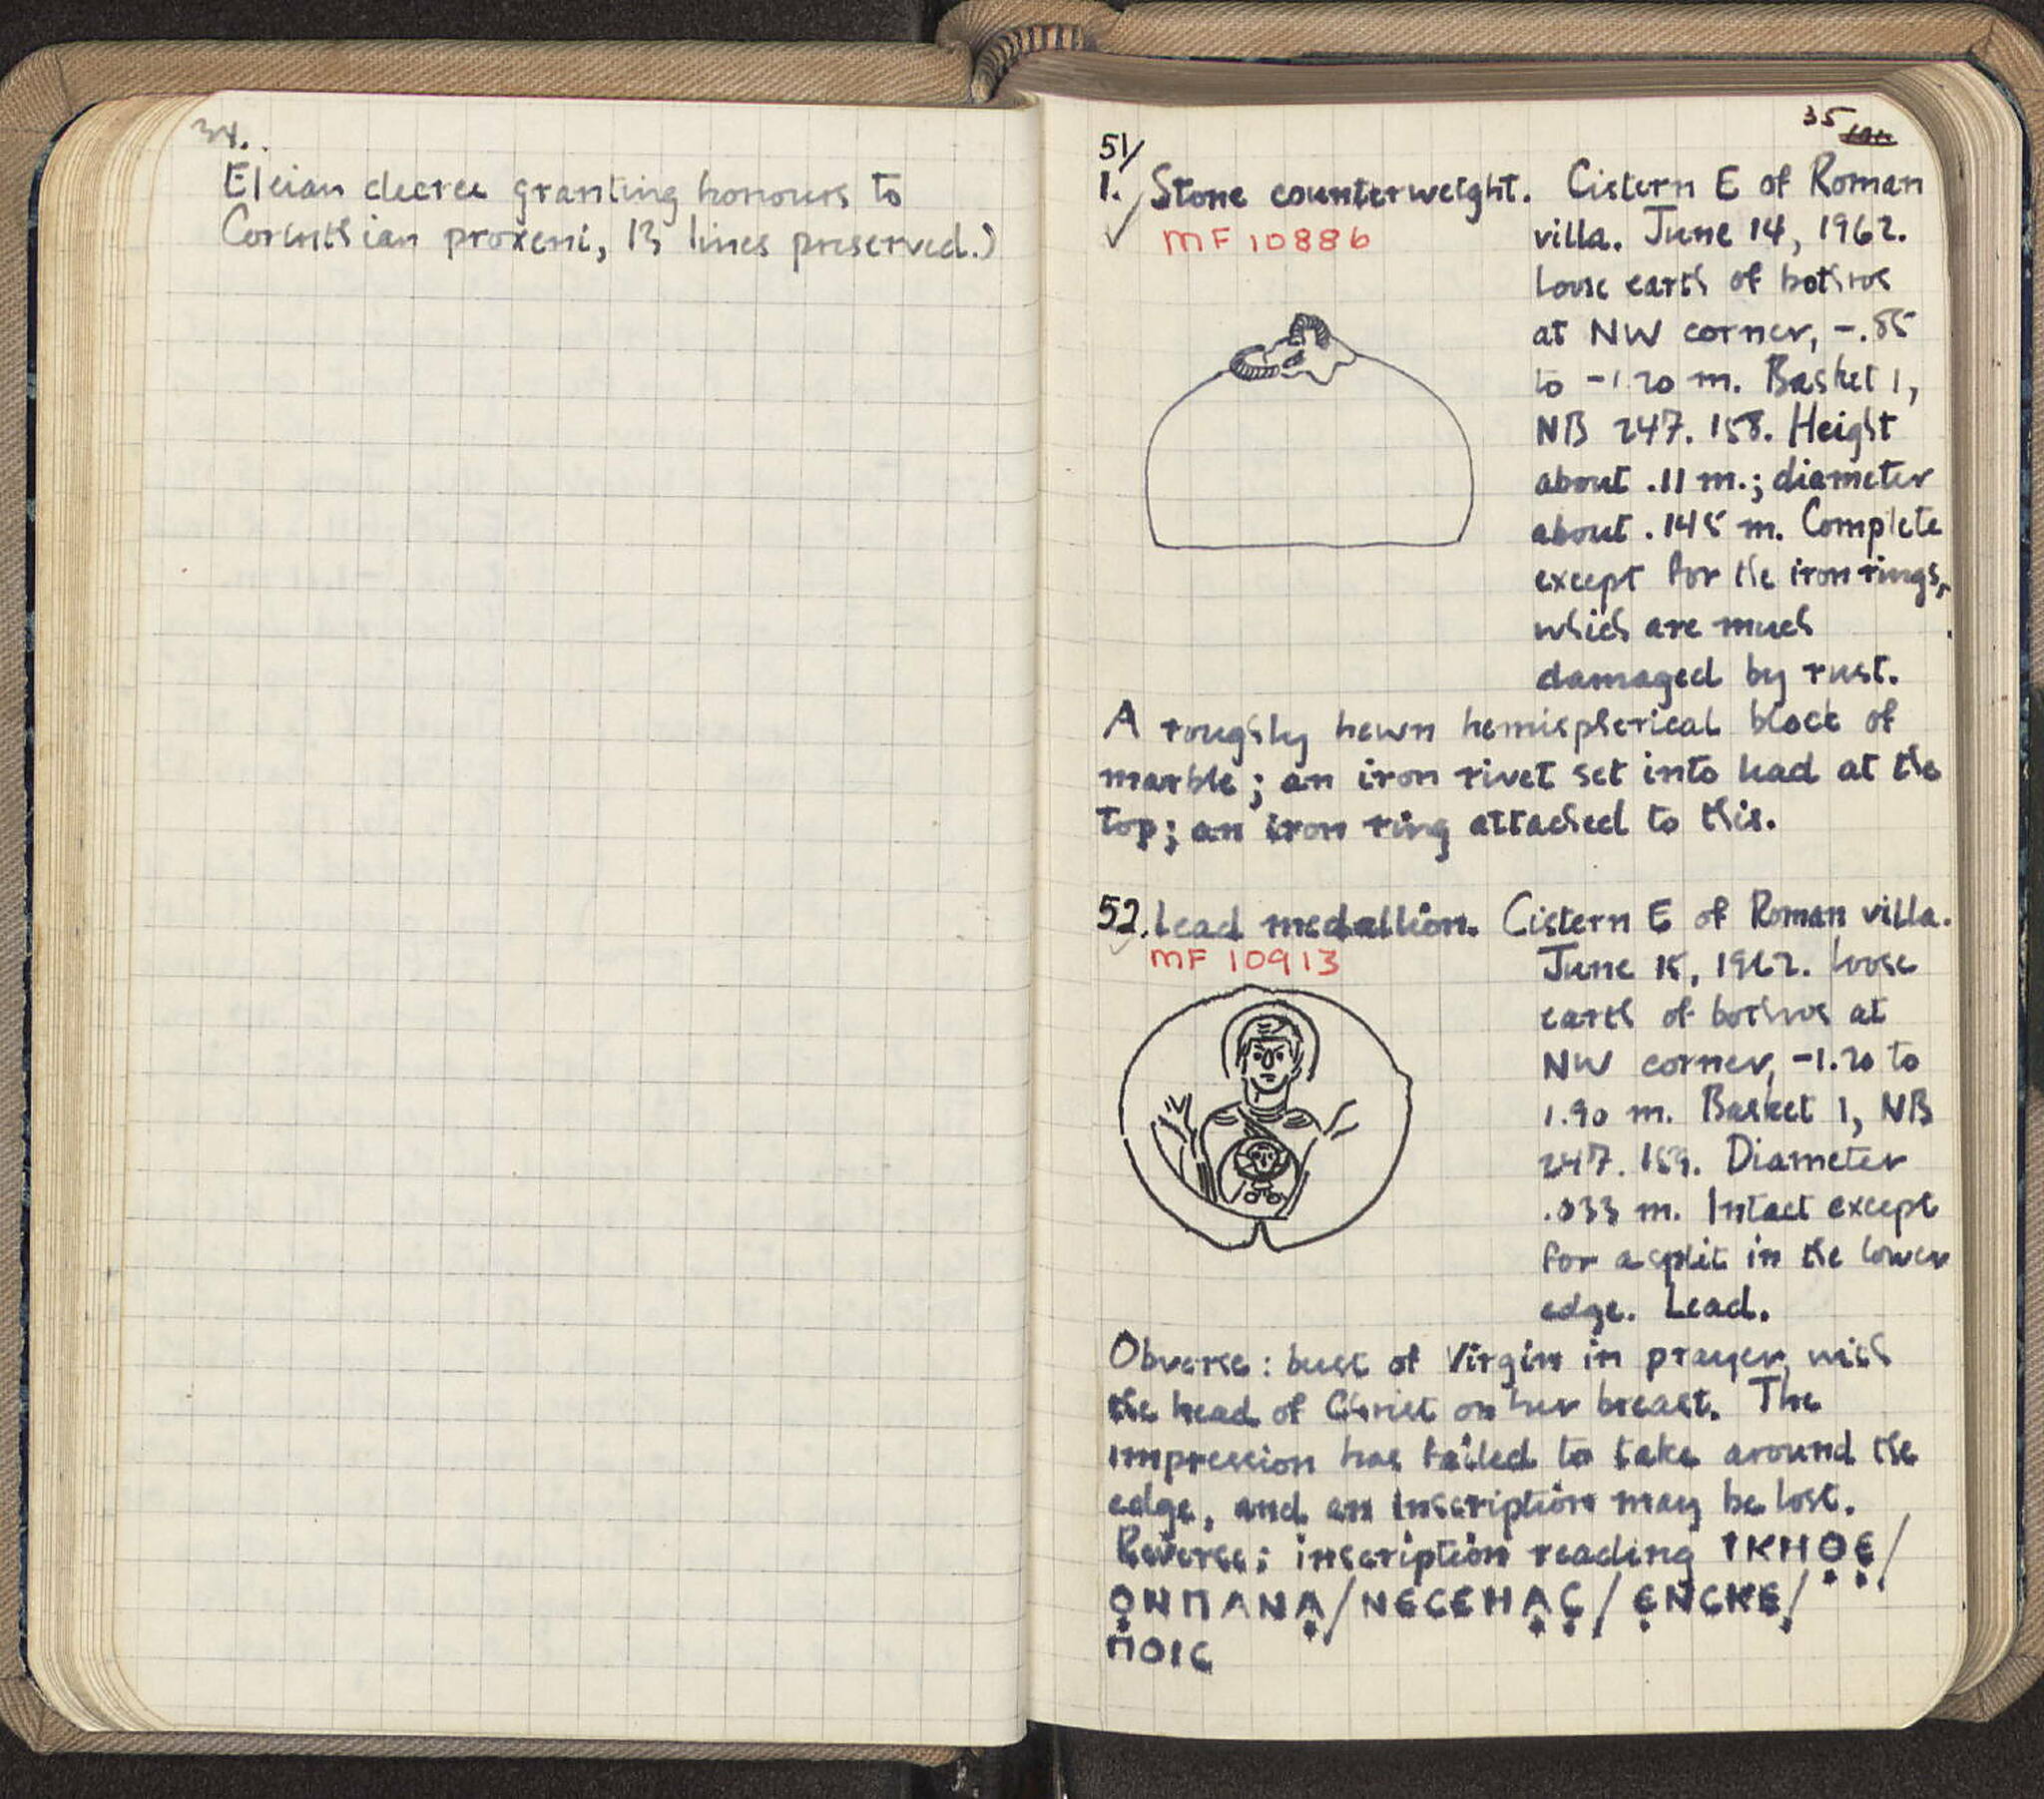 34.
Eleian decree granting honours to
Corinthian proxeni, 13 lines preserved.)
35
51/
1. Stone counterweight. Cistern E of Roman
MF 10886
villa. June 14, 1962.
Loose earth of bothros
at NW corner, -.85
to -1.20 m. Basket 1,
NB 247. 158. Height
about .11 m.; diameter
about .145 m. Complete
except for the iron rings,
which are much
damaged by rust.
A roughly hewn hemispherical block of
marble; an iron rivet set into lead at the
top; an iron ring attached to this.
52. Lead medallion. Cistern E of Roman villa.
MF 10913
June 15, 1962. Loose
earth of bothros at
NW corner, -1.20 to
1.90 m. Basket 1, NB
247. 159. Diameter
.033 m. Intact except
for a split in the lower
edge. Lead.
Obverse: bust of Virgin in prayer, with
the head of Christ on her breast. The
impression has failed to take around the
edge, and an inscription may be lost.
Reverse: inscription reading ΙΚΗΘ̣Ε̣/
Ο̣ΝΠΑΝΑ̣/ΝЄCЄΗΑ̣C̣/ЄΝCΚЄ/
ΠΟΙC